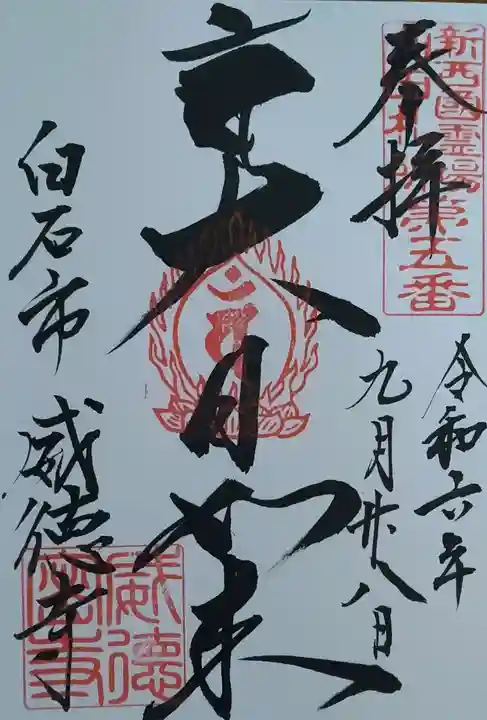 新西國霊場
第五番
奉拝
令和六年
九月廿八日
大日如来
白石市 威徳寺
威徳